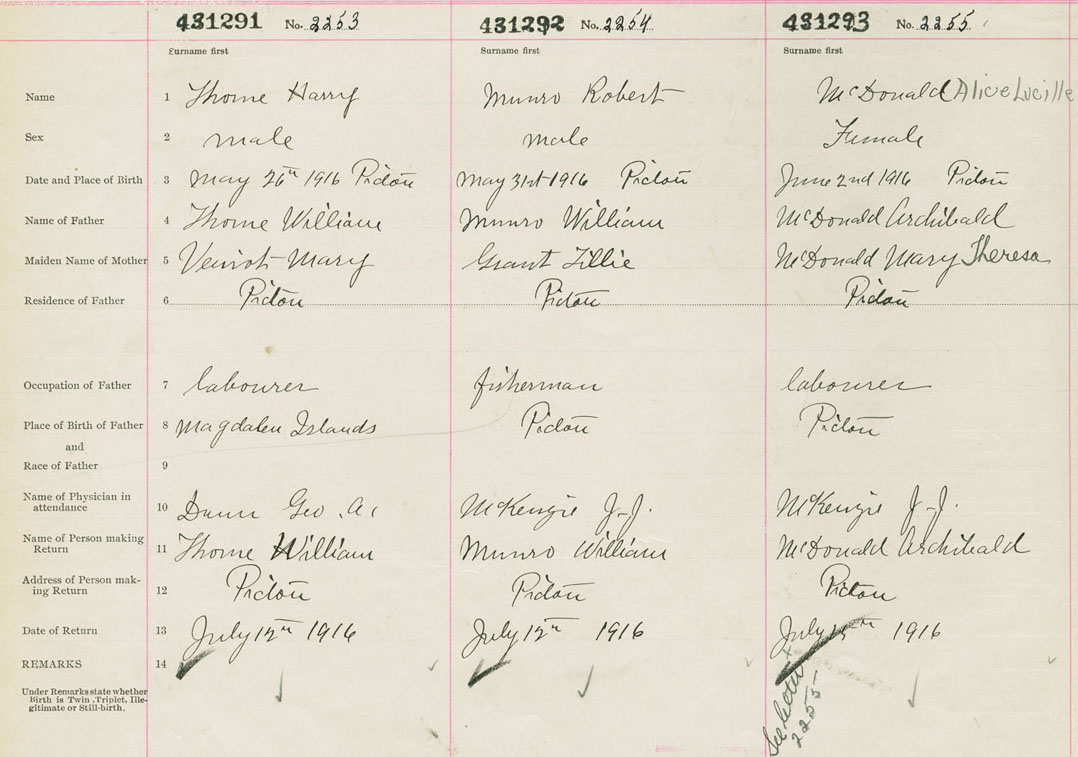 431291 No. 2253 431292 No. 2254 431293 No. 2255
Surname first Surname first Surname first
Name 1 Thorne Harry Munro Robert McDonald Alice Lucille
Sex 2 male male Female
Date and Place of Birth 3 May 26th 1916 Pictou May 31st 1916 Pictou June 2nd 1916 Pictou
Name of Father 4 Thorne William Munro William McDonald Archibald
Maiden Name of Mother 5 Veinot Mary Grant Lillie McDonald Mary Theresa
Residence of Father 6 Pictou Pictou Pictou
Occupation of Father 7 labourer fisherman labourer
Place of Birth of Father 8 Magdalen Islands Pictou Pictou
and
Race of Father 9
Name of Physician in
attendance 10 Dunn Geo. A. McKenzie J. J. McKenzie J. J.
Name of Person making
Return 11 Thorne William Munro William McDonald Archibald
Address of Person mak-
ing Return 12 Pictou Pictou Pictou
Date of Return 13 July 12th 1916 July 12th 1916 July 1916
REMARKS 14
Under Remarks state whether
Birth is Twin, Triplet, Ille-
gitimate or Still-birth.
See letter
2255